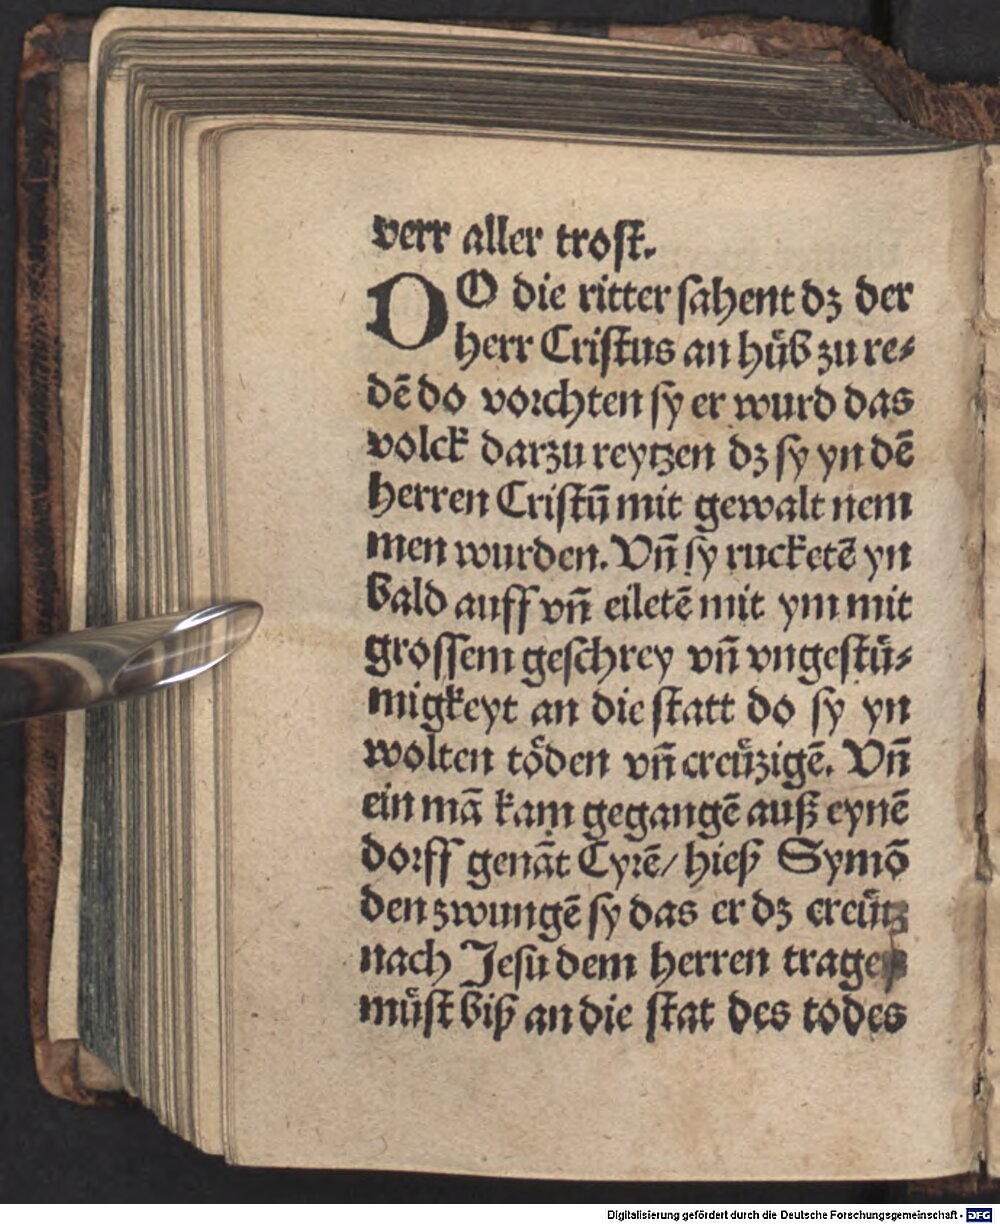 verr aller trost.
DO die ritter sahent dz der
herr Cristus an hůb zu re⸗
dē do vorchten sy er wurd das
volck darzu reytzen dz sy yn dē
herren Cristū mit gewalt nem
men wurden. Vñ sy rucketē yn
bald auff vñ eiletē mit ym mit
grossem geschrey vñ vngestü⸗
migkeyt an die statt do sy yn
wolten töden vñ creüzigē. Vñ
ein mā kam gegangē auß eynē
dorff genāt Cyrē/ hieß Symō
den zwungē sy das er dz creütz
nach Jesu dem herren tragen
müst biß an die stat des todes
Digitalisierung gefördert durch die Deutsche Forschungsgemeinschaft - DFG